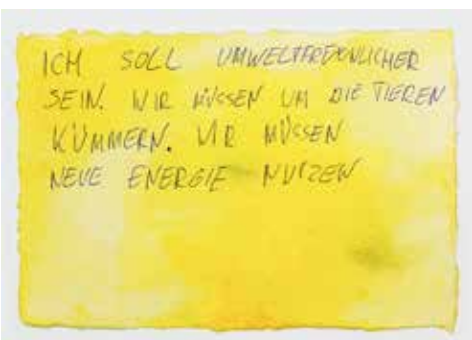 ICH SOLL UMWELTFREUNLICHER
SEIN. WIR MÜSSEN UM DIE TIEREN
KÜMMERN. WIR MÜSSEN
NEUE ENERGIE NUTZEN